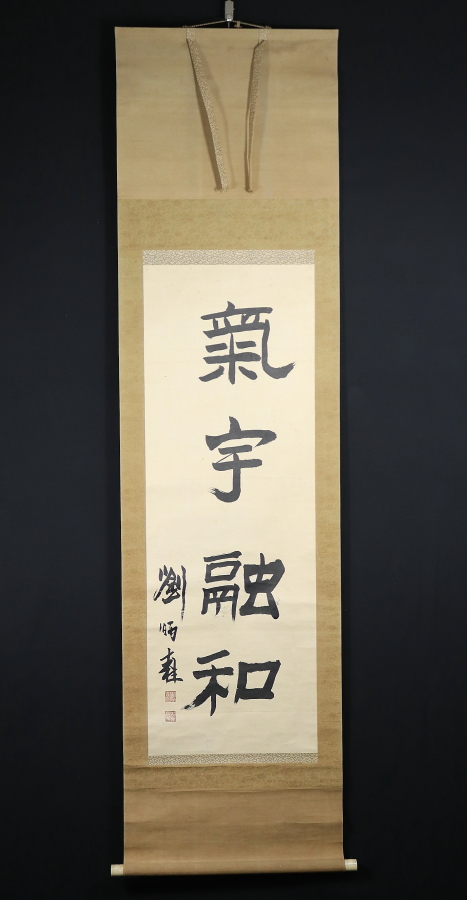 氣宇融和
劉炳森